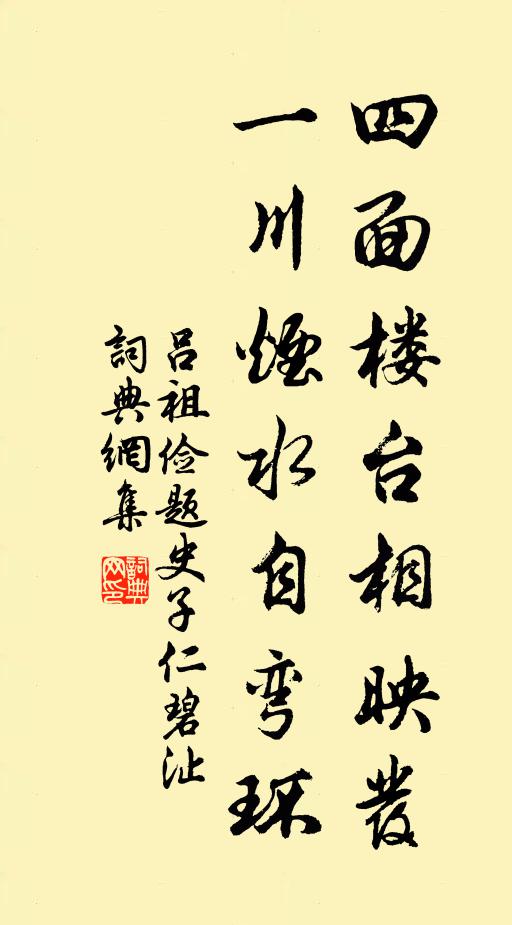 四面楼台相映發
一川煙水自弯环
吕祖俭题史子仁碧沚
詞典網集
詞典网印